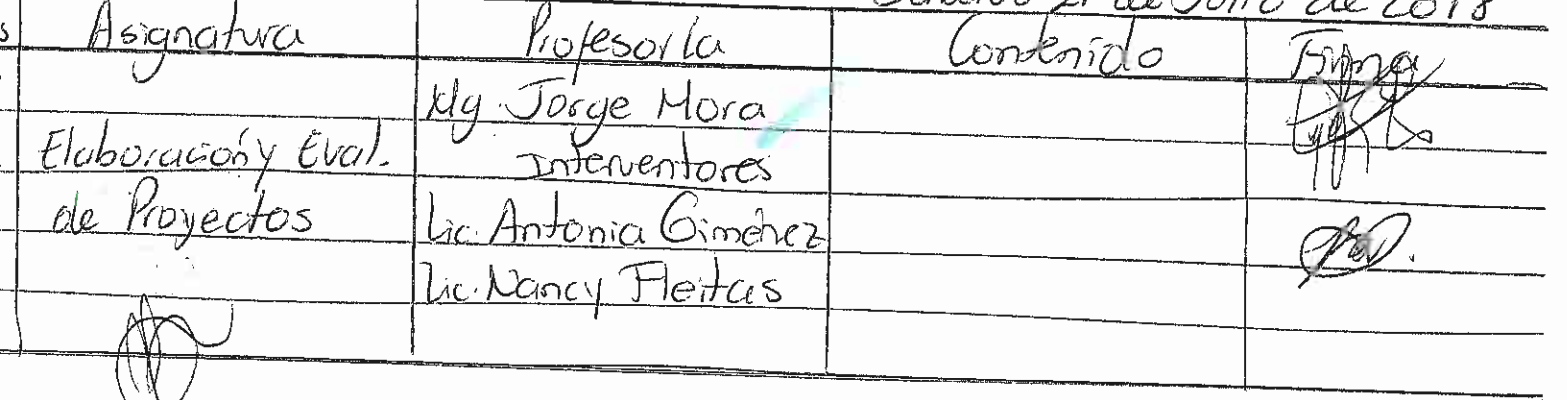 Sábado 21 de Julio de 2018
Asignatura Profesor/a Contenido Firma
Mg. Jorge Mora
Elaboración y Eval. Interventores
de Proyectos Lic. Antonia Giménez
Lic. Nancy Fleitas